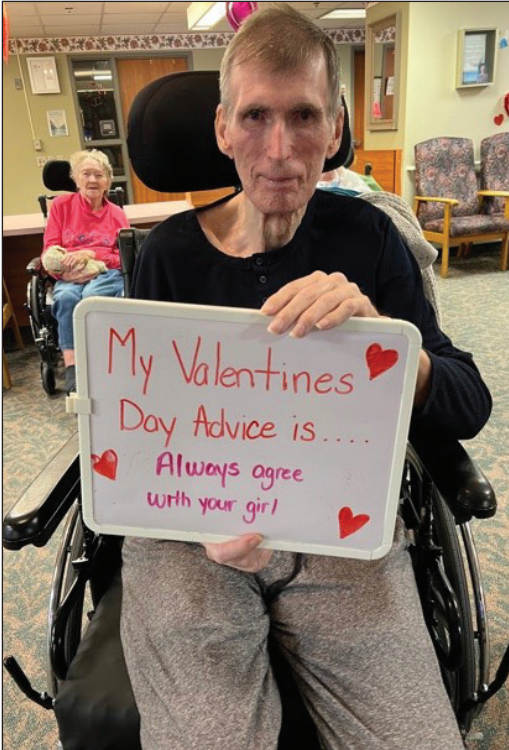 My Valentines
Day Advice is....
Always agree
with your girl